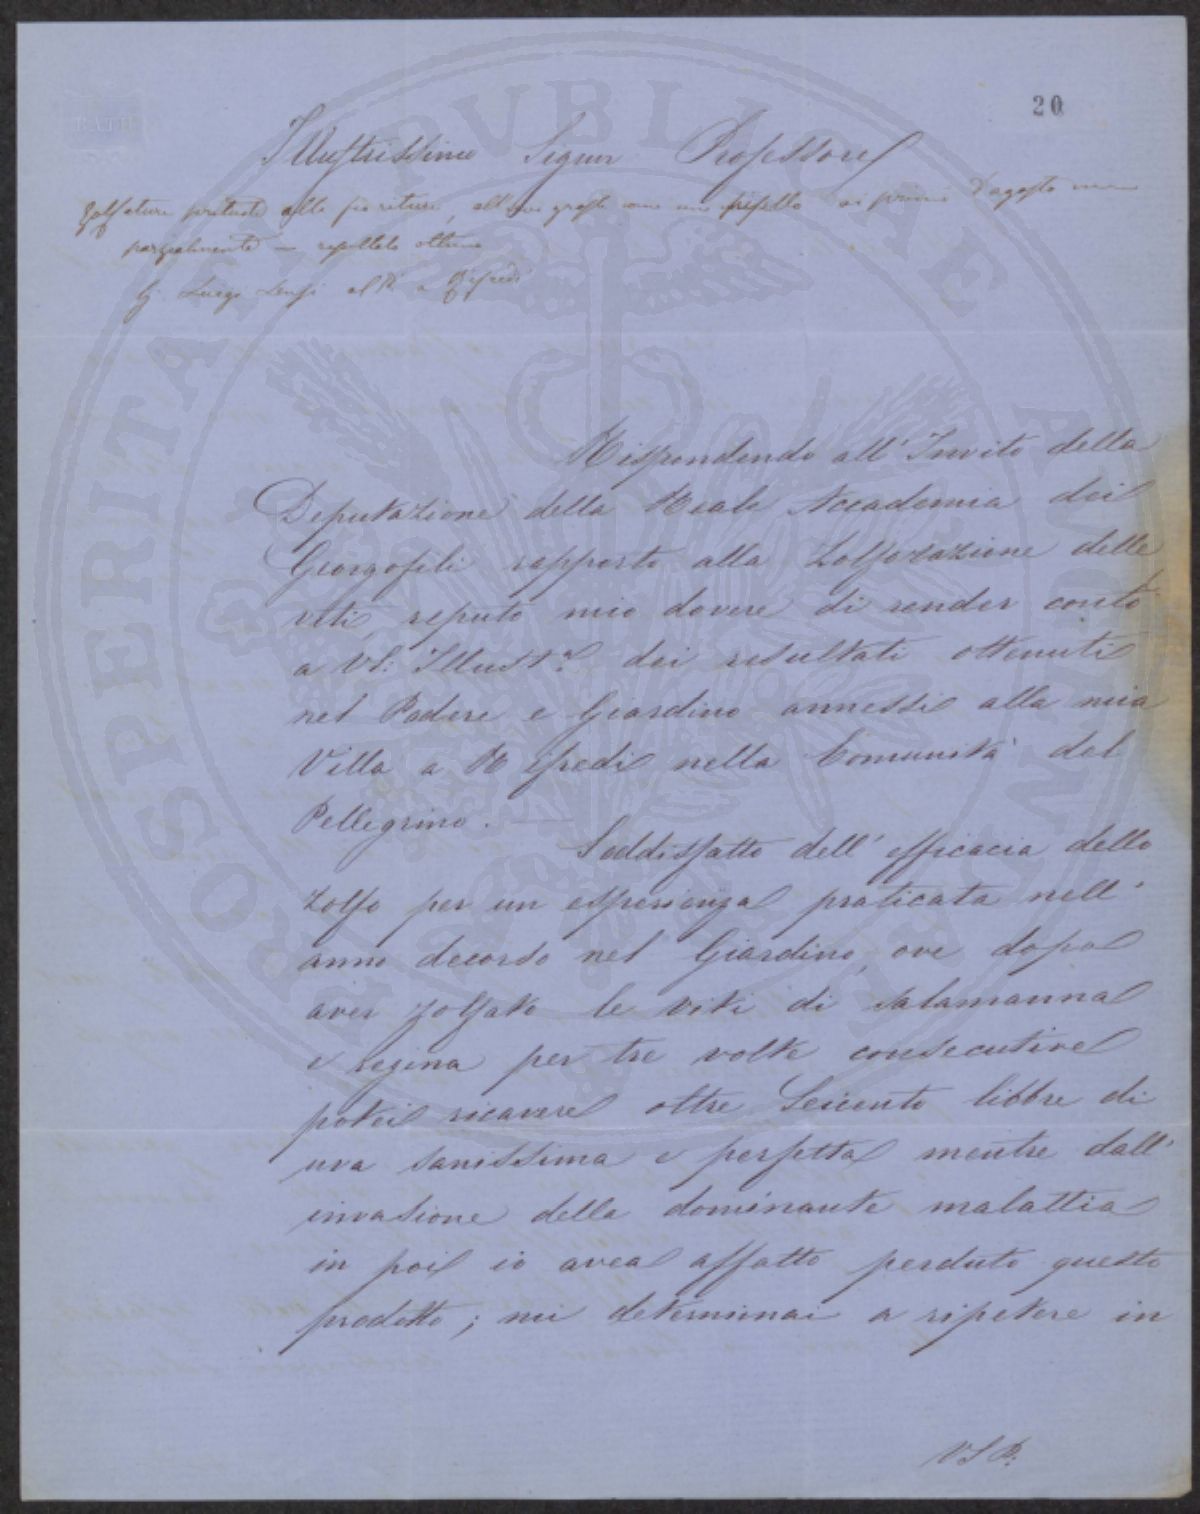 20
Illustrissimo Signor Professore
Zolfature portate alla fioritura, all'uva grossa come un pisello ai primi d'agosto
parzialmente — resultato ottimo
Luigi Lensi al R a Rifredi
Rispondendo all'Invito della
Deputazione della Reale Accademia dei
Georgofili rapporto alla Zolforazione delle
viti, reputo mio dovere di render conto
a VS: Illustr. dei resultati ottenuti
nel Podere e Giardino annessi alla mia
Villa a Rifredi nella Comunità del
Pellegrino. —
Soddisfatto dell'efficacia dello
Zolfo per un esperienza praticata nell'
anno decorso nel Giardino, ove dopo
aver zolfato le viti di Salamanna
e regina per tre volte consecutive
potei ricavare oltre Seicento libbre di
uva sanissima e perfetta mentre dall'
invasione della dominante malattia
in poi io avea affatto perduto questo
prodotto; mi determinai a ripetere in
PROSPERITATI PVBLICAE AVGENDAE